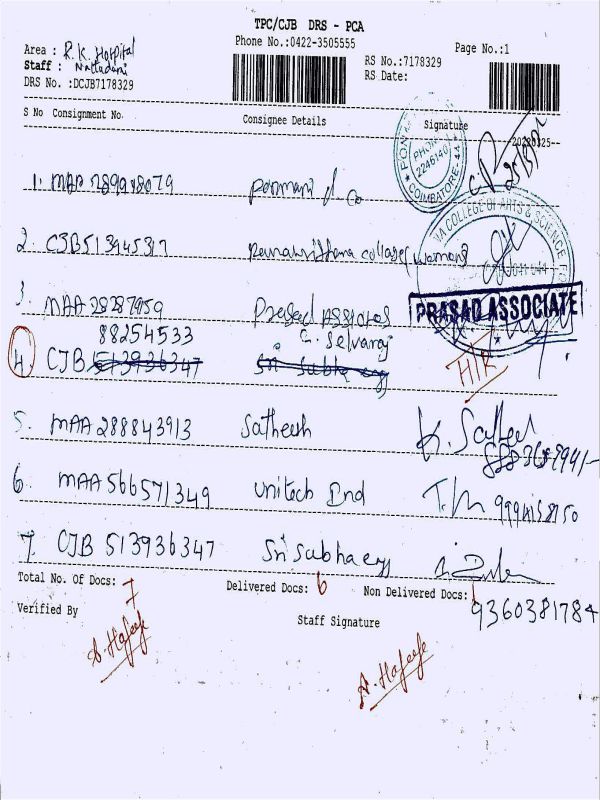 TPC/CJB DRS - PCA
Phone No.:0422-3505555
Page No.:1
Area : R.K. Hospital
Staff :
RS No.:7178329
RS Date:
DRS No. :DCJB7178329
S No Consignment No. Consignee Details Signature
1. MAA 289988079 Ponmani & Co
2. CJB 513945317
3 MAA 28287959 Prasad
88254533 C. Selvaraj
4. CJB 513936347 Sri Subha
5. MAA 288843913 Satheesh K.
6. MAA 566571349 Unitech Bnd T.M
7. CJB 513936347 Sri Subha
PHONE
2246140
COIMBATORE
COLLEGE OF ARTS & SCIENCE FO
PRASAD ASSOCIATE
Total No. Of Docs: 7 Delivered Docs: 6 Non Delivered Docs: 1
9360381784
Verified By Staff Signature
A. Hafeefe A. Hafeefe